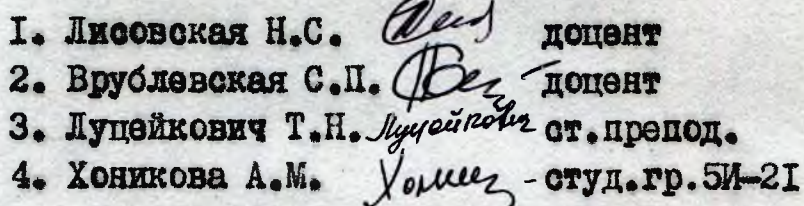 I. Лисовская Н.С. доцент
2. Врублевская С.П. доцент
3. Луцейкович Т.Н. Луцейкович ст.препод.
4. Хоникова А.М. - студ.гр.5И-2I